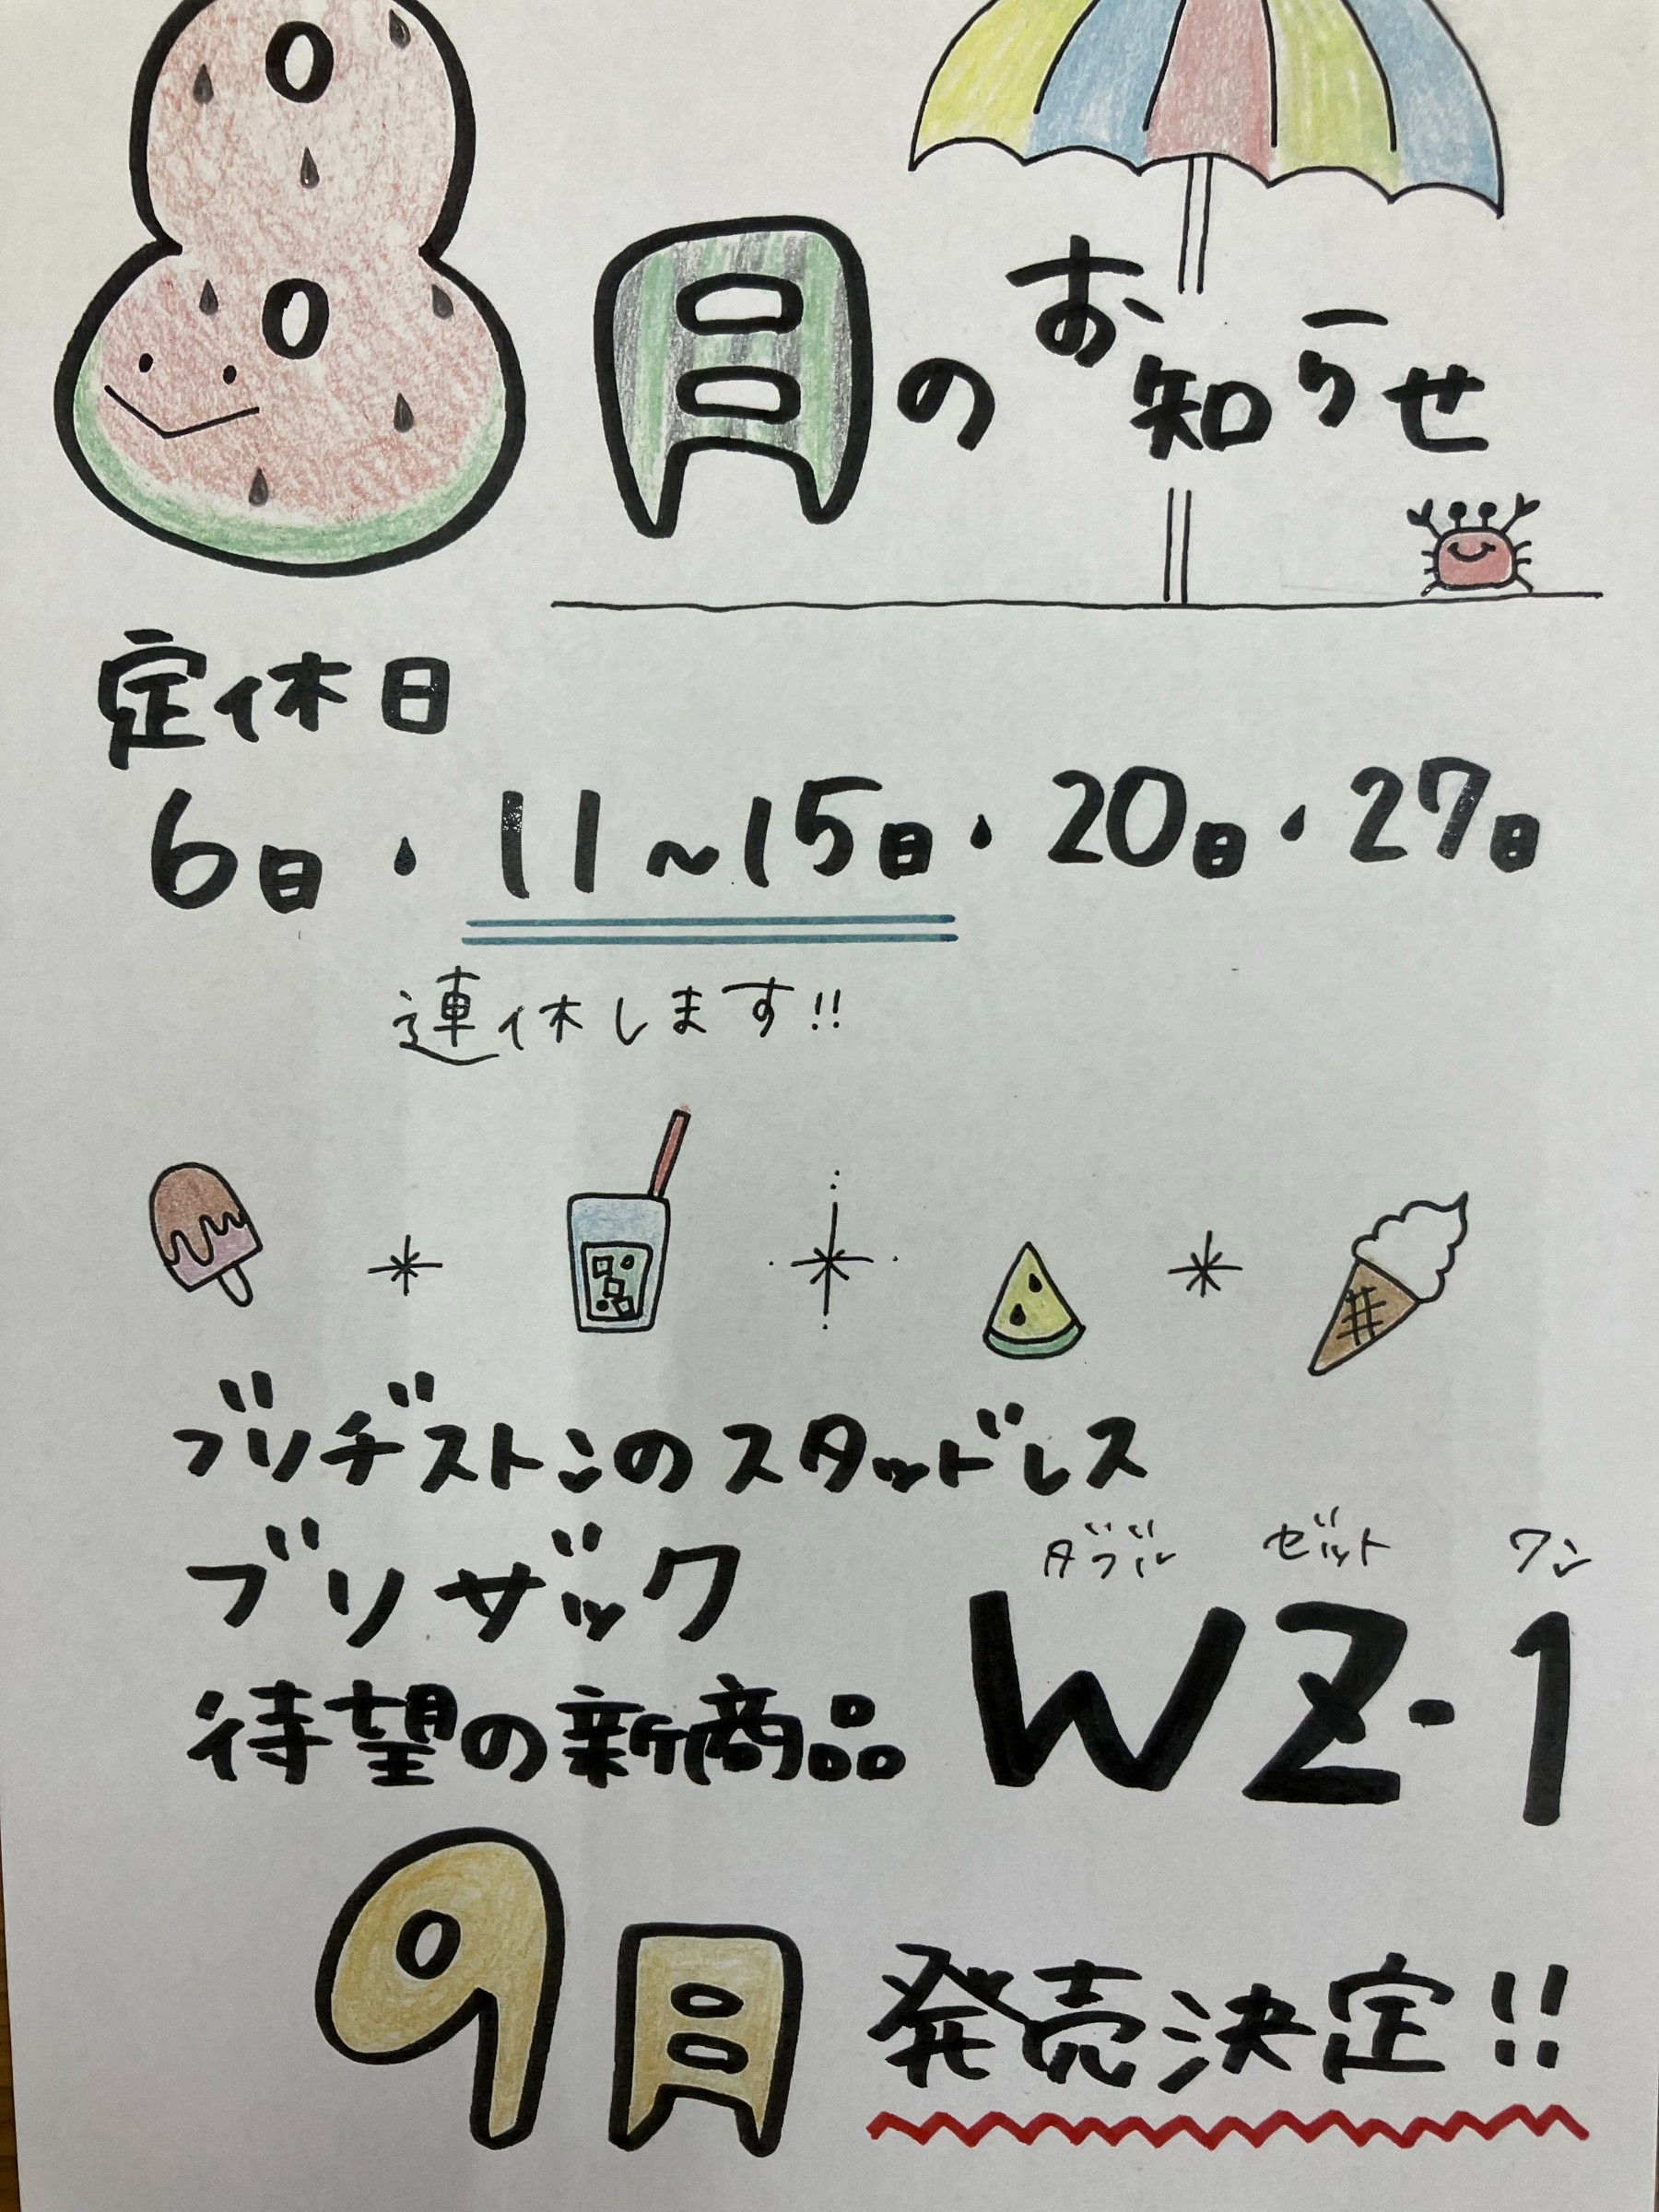 8月のお知らせ
定休日
6日・11~15日・20日・27日
連休します!!
ブリヂストンのスタッドレス
ブリザック
ダブル ゼット ワン
WZ-1
待望の新商品
9月 発売決定!!